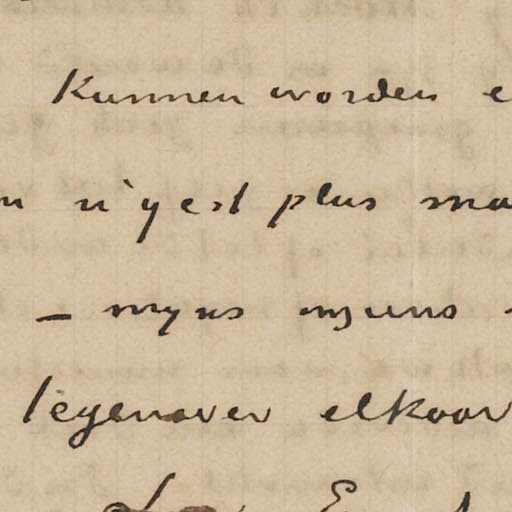 Kunnen worden e
n n'y est plus ma
— myns inziens
tegenover elkaar